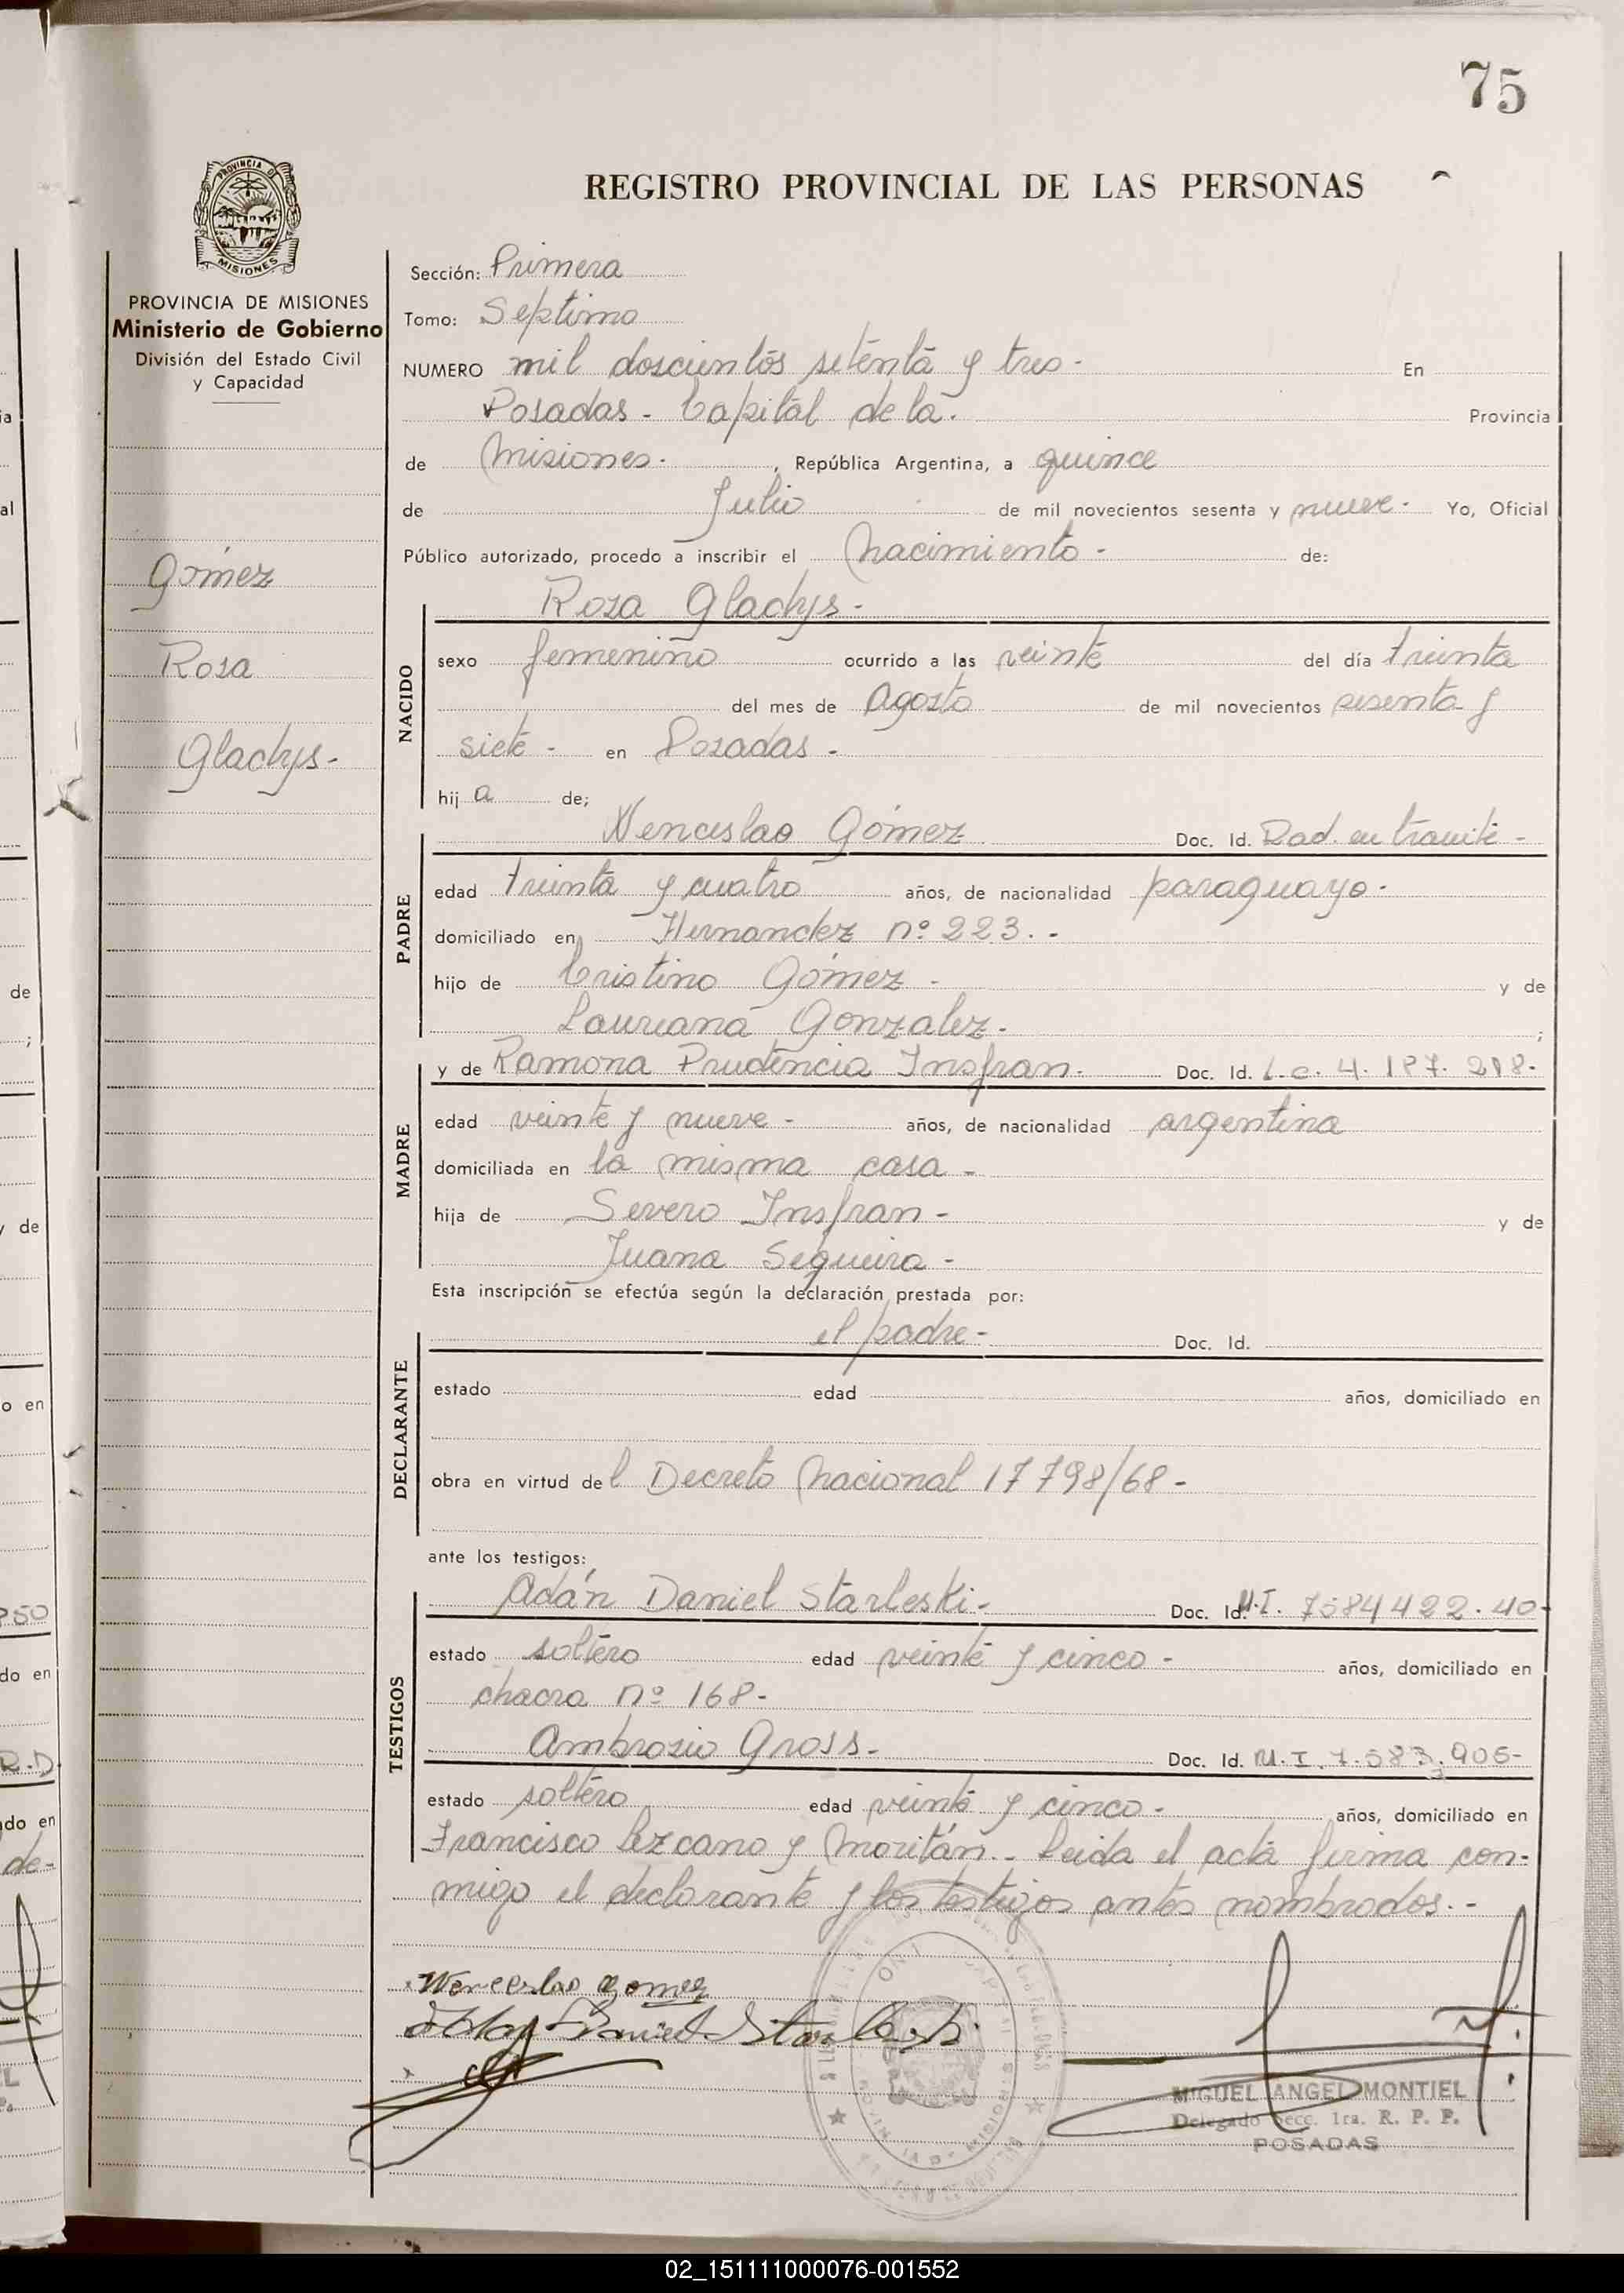 75
REGISTRO PROVINCIAL DE LAS PERSONAS
PROVINCIA DE MISIONES
PROVINCIA DE MISIONES
Ministerio de Gobierno
División del Estado Civil
y Capacidad
Gómez
Rosa
Gladys-
Sección: Primera
Tomo: Septimo
NUMERO mil doscientos setenta y tres- En
Posadas - Capital de la. Provincia
de Misiones- , República Argentina, a quince
de Julio de mil novecientos sesenta y nueve- Yo, Oficial
Público autorizado, procedo a inscribir el nacimiento - de:
Rosa Gladys-
NACIDO
sexo femenino ocurrido a las veinte del día treinta
del mes de Agosto de mil novecientos sesenta y
siete - en Posadas -
hij a de;
Wenceslao Gómez Doc. Id. Rad. en tramite -
PADRE
edad treinta y cuatro años, de nacionalidad paraguayo-
domiciliado en Hernandez nº 223. -
hijo de Cristino Gómez - y de
Laureana Gonzalez- ;
y de Ramona Prudencia Insfran- Doc. Id. L.C. 4.187.218-
MADRE
edad veinte y nueve - años, de nacionalidad argentina
domiciliada en la misma casa -
hija de Severo Insfran - y de
Juana Sequeira -
Esta inscripción se efectúa según la declaración prestada por:
el padre- Doc. Id.
DECLARANTE
estado edad años, domiciliado en
obra en virtud de l Decreto Nacional 17798/68-
ante los testigos:
Adán Daniel Starleski- Doc. Id. M.I. 7584422. 40-
TESTIGOS
estado soltero edad veinte y cinco - años, domiciliado en
chacra nº 168-
Ambrosio Gross- Doc. Id. M.I. 7.583.905-
estado soltero edad veinte y cinco - años, domiciliado en
Francisco Lezcano y Moritán.- Leida el acta firma con-
migo el declarante y los testigos antes nombrados. -
Wenceslao gomez
Daniel Starleski
MIGUEL ANGEL MONTIEL
Delegado Secc. 1ra. R. P. P.
POSADAS
02_151111000076-001552